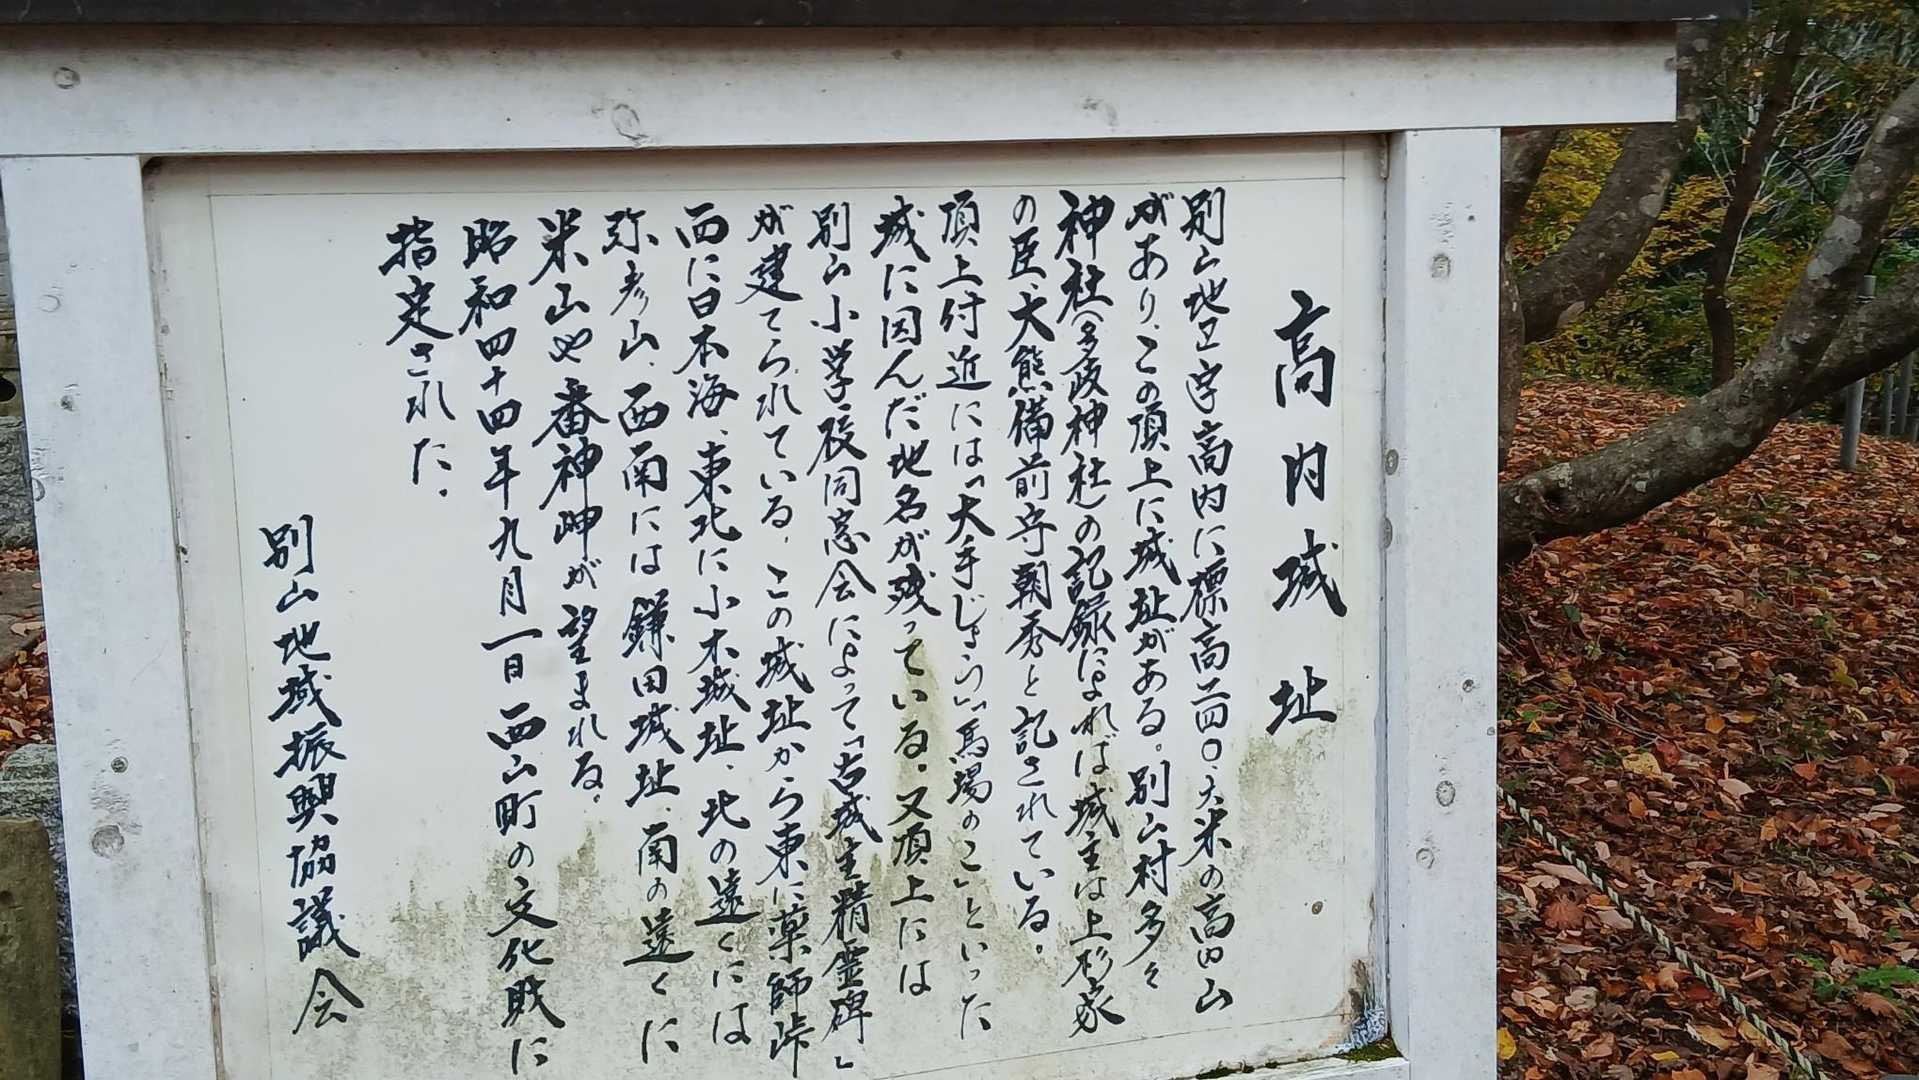 高内城址
別山地区字高内に標高二四〇・六米の高内山
があり、この頂上に城址がある。別山村多々
神社(多岐神社)の記録によれば城主は上杉家
の臣、大熊備前守朝秀と記されている。
頂上付近には「大手じきり」「馬場のこ」といった
城に因んだ地名が残っている。又頂上には
別山小学校同窓会によって「古城主精霊碑」
が建てられている。この城址から東に薬師峠
西に日本海、東北に小木城址、北の遠くには
弥彦山、西南には鎌田城址、南の遠くに
米山や番神岬が望まれる。
昭和四十四年九月一日西山町の文化財に
指定された。
別山地域振興協議会